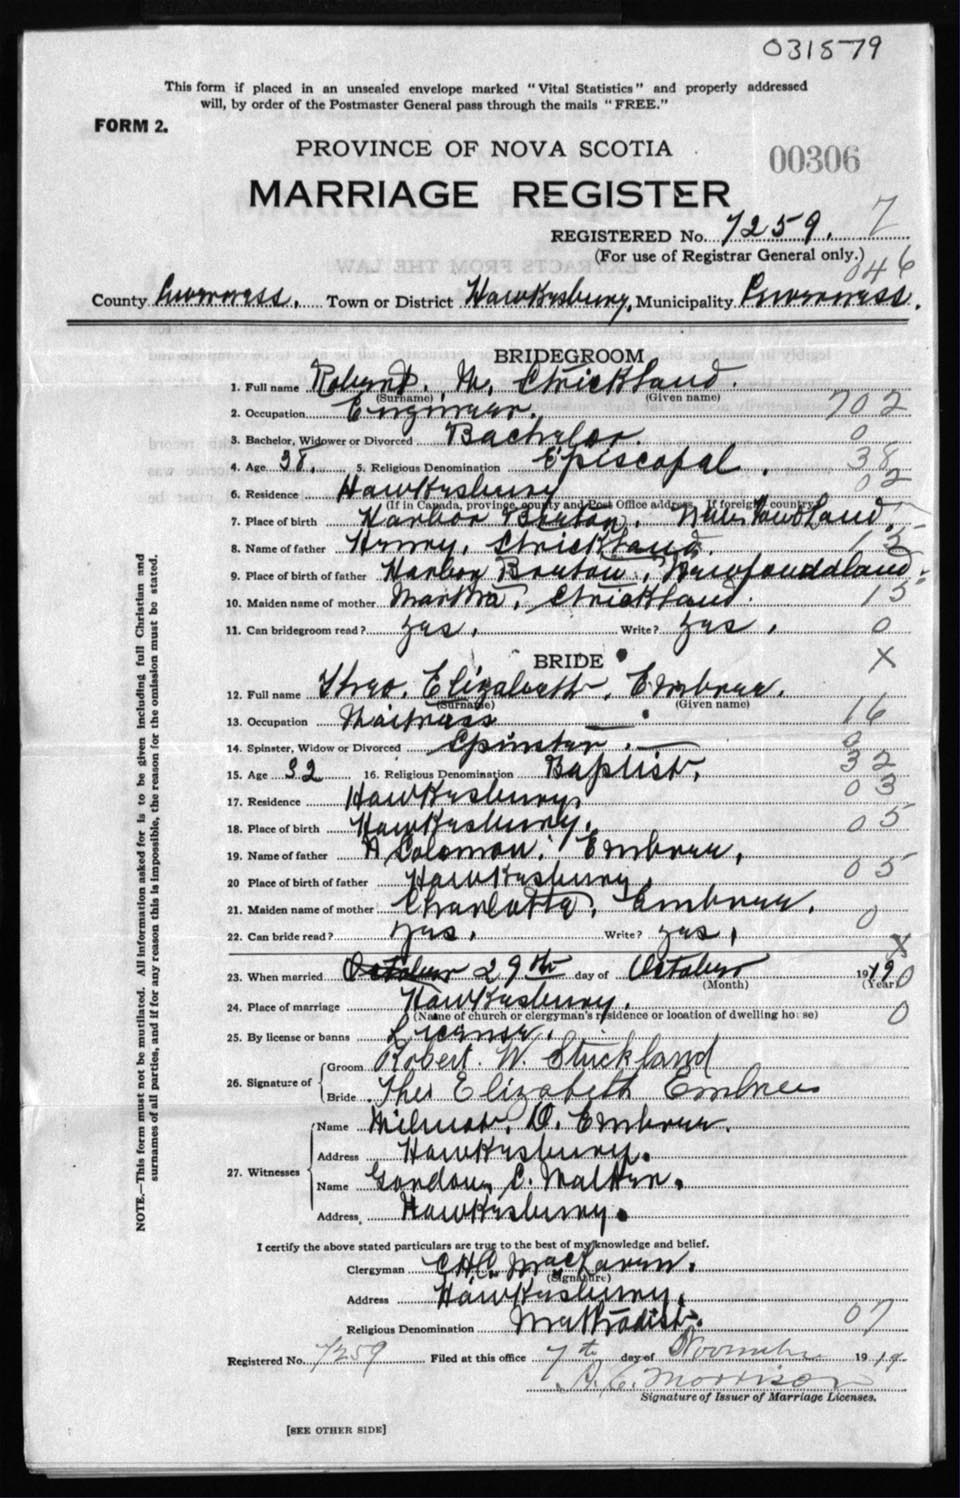 031579
This form if placed in an unsealed envelope marked "Vital Statistics" and properly addressed
will, by order of the Postmaster General pass through the mails "FREE."
FORM 2.
PROVINCE OF NOVA SCOTIA
00306
MARRIAGE REGISTER
REGISTERED No. 7259. 7
(For use of Registrar General only.)
046
County Inverness. Town or District Hawkesbury, Municipality Inverness.
BRIDEGROOM
1. Full name Robert W. Strickland.
(Surname) (Given name)
2. Occupation Engineer. 702
3. Bachelor, Widower or Divorced Bachelor. 0
4. Age 38. 5. Religious Denomination Episcopal. 38
6. Residence Hawkesbury 02
(If in Canada, province, county and Post Office address. If foreign country
7. Place of birth Harbor Breton. Newfoundland.
8. Name of father Henry. Strickland. 15
9. Place of birth of father Harbor Breton, Newfoundland.
10. Maiden name of mother Martha. Strickland. 15
11. Can bridegroom read? yes. Write? yes. 0
BRIDE X
12. Full name Elizabeth. Embree.
(Surname) (Given name)
13. Occupation Waitress 16
14. Spinster, Widow or Divorced Spinster. 0
15. Age 32 16. Religious Denomination Baptist. 32
17. Residence Hawkesbury. 03
18. Place of birth Hawkesbury. 05
19. Name of father Solomon. Embree.
20 Place of birth of father Hawkesbury. 05
21. Maiden name of mother Charlotte. Embree.
22. Can bride read? yes. Write? yes. 0
X
23. When married October 29th day of October 1919 0
(Month) (Year)
24. Place of marriage Hawkesbury. 0
(Name of church or clergyman's residence or location of dwelling house)
25. By license or banns License.
26. Signature of
Groom Robert. W. Strickland
Bride Elizabeth Embree
27. Witnesses
Name Wilmot. D. Embree.
Address Hawkesbury.
Name Gordon, C. Walker.
Address Hawkesbury.
I certify the above stated particulars are true to the best of my knowledge and belief.
Clergyman MacLaren.
(Signature)
Address Hawkesbury.
Religious Denomination Methodist. 07
Registered No. 7259 Filed at this office 7th day of November 1919.
A. C. Morrison
Signature of Issuer of Marriage Licenses.
[SEE OTHER SIDE]
NOTE.—This form must not be mutilated. All information asked for is to be given including full Christian and
surnames of all parties, and if for any reason this is impossible, the reason for the omission must be stated.